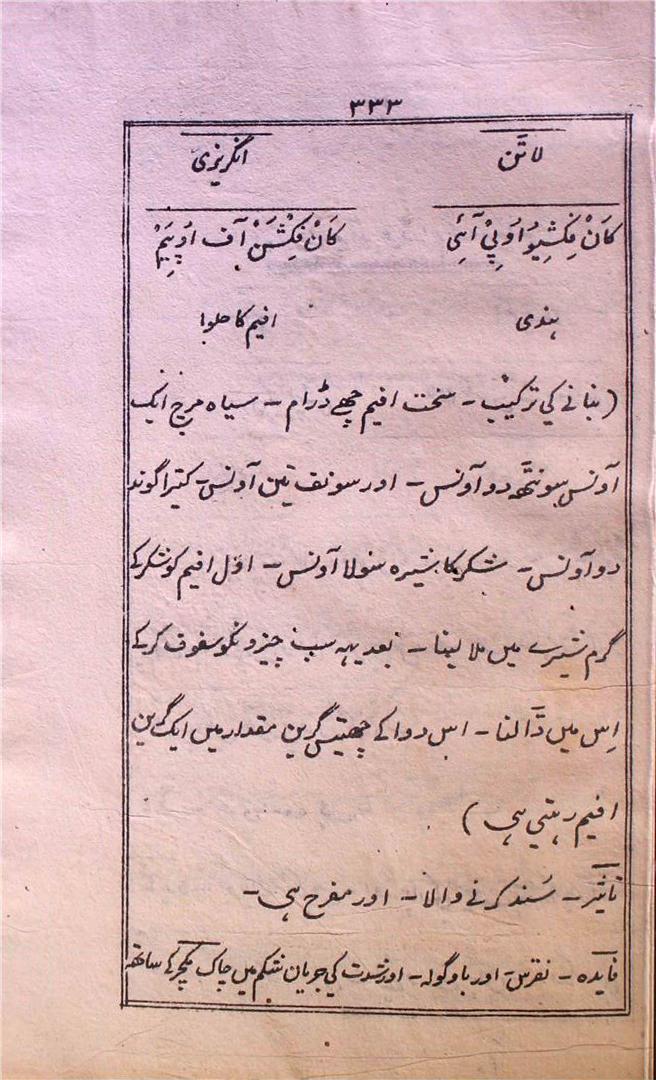 ۳۳۳
لاتن انگریزی
کَانْ فِکْشِیُو اُوپِیْ آئِی کَانْ فِکْشَنْ آف اُوپِیَمْ
ہندی افیم کا حلوا
(بنانے کی ترکیب ـ سخت افیم چھے ڈرام ـ سیاہ مرچ ایک
آونس سونٹھ دو آونس ـ اور سونف تین آونس ـ کتیرا گوند
دو آونس ـ شکر کا شیرہ سولا آونس ـ اوّل افیم کو شکر کے
گرم شیرے میں ملا لینا ـ بعد یہہ سب چیزونکو سفوف کرکے
اِس میں ڈالنا ـ اس دوا کے چھتیس گرین مقدار میں ایک گرین
افیم رہتی ہی)
تاثیر ـ سُند کرنے والا ـ اور مفرح ہی ـ
فایدہ ـ نقرس ـ اور باوگولہ ـ اور شدت کی جریان شکم میں چاک مکچر کے ساتھ